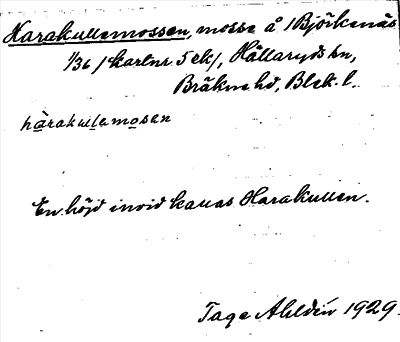 Harakullemossen, mosse å /Björkenäs
1/36 /kartnr 5 ek/, Hällaryds sn,
Bräkne hd, Blek. l.
hàrakul̲lemo̲sen
En höjd invid kallas Harakullen.
Tage Ahldén 1929.